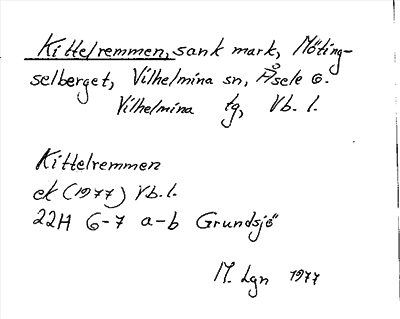 Kittelremmen, sank mark, Möting-
selberget, Vilhelmina sn, Åsele G.
Vilhelmina tg, Vb. l.
Kittelremmen
ek (1977) Vb. l.
22H 6-7 a-b Grundsjö
M. Lgn 1977